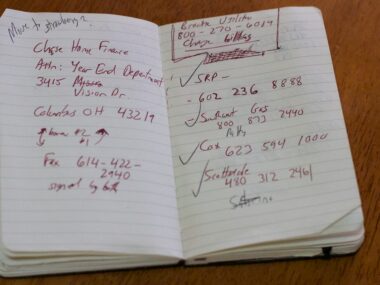 Move to
Chase Home Finance
Attn: Year End Department
3415
Vision Dr.
Columbus OH 43219
home #2
#1
Fax 614-422-
2940
signed by both
Utilities
800-270-6019
Chase
✓ SRP -
- 602 236 8888
- Southwest Gas
800 873 2440
✓ Cox 623 594 1000
✓ Scottsdale
480 312 2461